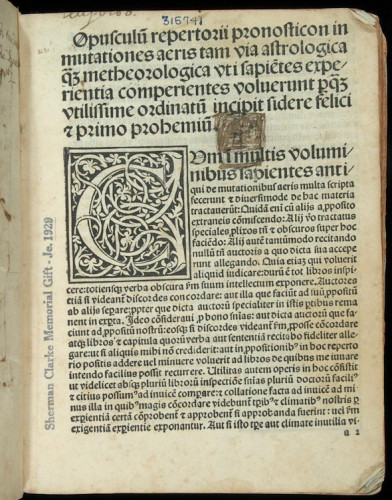 315741
Opusculū repertorii pronosticon in
mutationes aeris tam via astrologica
q̄ metheorologica vti sapiētes expe-
rientia comperientes voluerunt pq̄
vtilissime ordinatū incipit sidere felici
⁊ primo prohemiū.
CVm multis volumi-
nibus sapientes anti-
qui de mutationibus aeris multa scripta
fecerunt ⁊ diuersimode de hac materia
tractauerūt: Quidā eni cū alijs a ꝓposito
extraneis cōmiscendo: Alij vo tractatus
speciales ꝓlixos tn̄ ⁊ obscuros super hoc
faciēdo: Alij autē tantūmodo recitando
nullū tn̄ auctoris a quo dicta sua accepe
runt allegando. Quia eiaz qui voluerit
aliquid iudicare: durū ē tot libros inspi-
cere: totiensq verba obscura ꝑm suum intellectum exponere, Auctores
etiā si videant̄ discordes concordare: aut illa que faciūt ad suū ꝓpositi
ab alijs separe: ꝓpter que dicta auctorū specialiter in istis ꝑtibus rema
nent in exꝑta. Ideo cōsiderāui ꝓ bono
eorū ad ꝓpositi nostrū: eosq si discordes videant̄ ꝑm, posse cōcordare
atq libros ⁊ capitula quorū verba aut sententiā recito bo fideliter alle-
gare: ut si aliquis mibi nō crediderit: aut in ꝓpositionib in hoc reperto
rio positis addere ut minuere voluerit ad libros de quibus me iuuare
intendo facilius possit recurrere. Utilitas autem operis in hoc cōsistit
ut videlicet absq pluriū librorū inspectiōe
⁊ citius possum ad inuicē compare: ⁊ collatione facta ad inuicē ad mi-
nus illa in quib magis cōcordare videbunt̄ climatib nostris ꝑ
exꝑientia certā cōprobent̄ ⁊ approbent̄ si approbanda fuerint: uel ꝑm
exigentiā exꝑientie exponantur. Aut si isto tꝑe aut climate inutilia vi-
a 2
Sherman Clarke Memorial Gift - Je. 1929